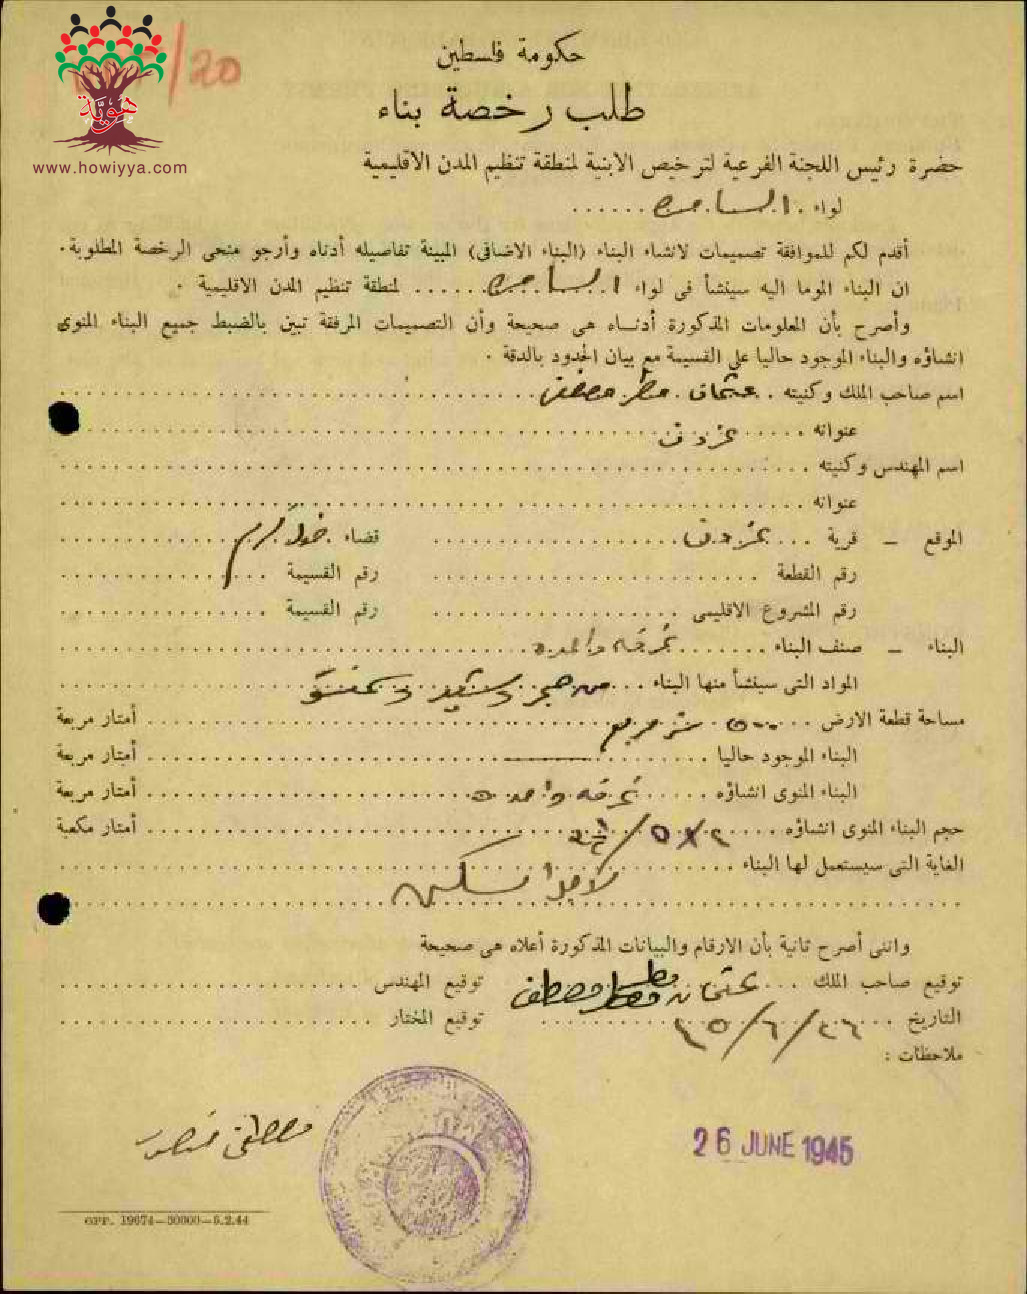 هوية
www.howiyya.com
/20
حكومة فلسطين
طلب رخصة بناء
حضرة رئيس اللجنة الفرعية لترخيص الابنية لمنطقة تنظيم المدن الاقليمية
لواء السامرة
أقدم لكم للموافقة تصميمات لانشاء البناء (البناء الاضافى) المبينة تفاصيله أدناه وأرجو منحى الرخصة المطلوبة.
ان البناء الموما اليه سينشأ فى لواء السامرة لمنطقة تنظيم المدن الاقليمية .
وأصرح بأن المعلومات المذكورة أدناه هى صحيحة وأن التصميمات المرفقة تبين بالضبط جميع البناء المنوى
انشاؤه والبناء الموجود حاليا على القسيمة مع بيان الحدود بالدقة .
اسم صاحب الملك وكنيته . عثمان مطر مصطفى
عنوانه عزون
اسم المهندس وكنيته
عنوانه
الموقع — قرية عزون قضاء طولكرم
رقم القطعة رقم القسيمة
رقم المشروع الاقليمى رقم القسيمة
البناء — صنف البناء غرفه واحده
المواد التى سينشأ منها البناء من حجر وشيد وسمنتو
مساحة قطعة الارض ٥٠٠ متر مربع أمتار مربعة
البناء الموجود حاليا أمتار مربعة
البناء المنوى انشاؤه غرفه واحده أمتار مربعة
حجم البناء المنوى انشاؤه أمتار مكعبة
الغاية التى سيستعمل لها البناء
لاجل السكن
وانى أصرح ثانية بأن الارقام والبيانات المذكورة أعلاه هى صحيحة
توقيع صاحب الملك عثمان مطر مصطفى توقيع المهندس
التاريخ ٢٦/٦/٤٥ توقيع المختار
ملاحظات :
مصطفى
26 JUNE 1945
GPP. 19674—30000—5.2.44